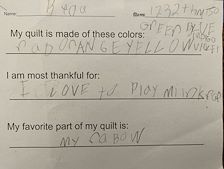 Name:
1232+hr+50
My quilt is made of these colors: GREEN
raD ORANGE YELLOW
I am most thankful for:
I LOVE to PLAY
My favorite part of my quilt is:
MY raBOW